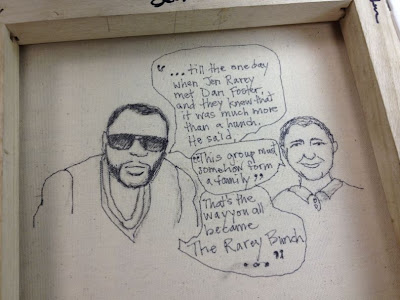 "...till the one day
when Jen Rarey
met Dan Foster,
and they knew that
it was much more
than a hunch.
He said,
"This group must
somehow form
a family"
That's the
way you all
became
The Rarey Bunch
..."